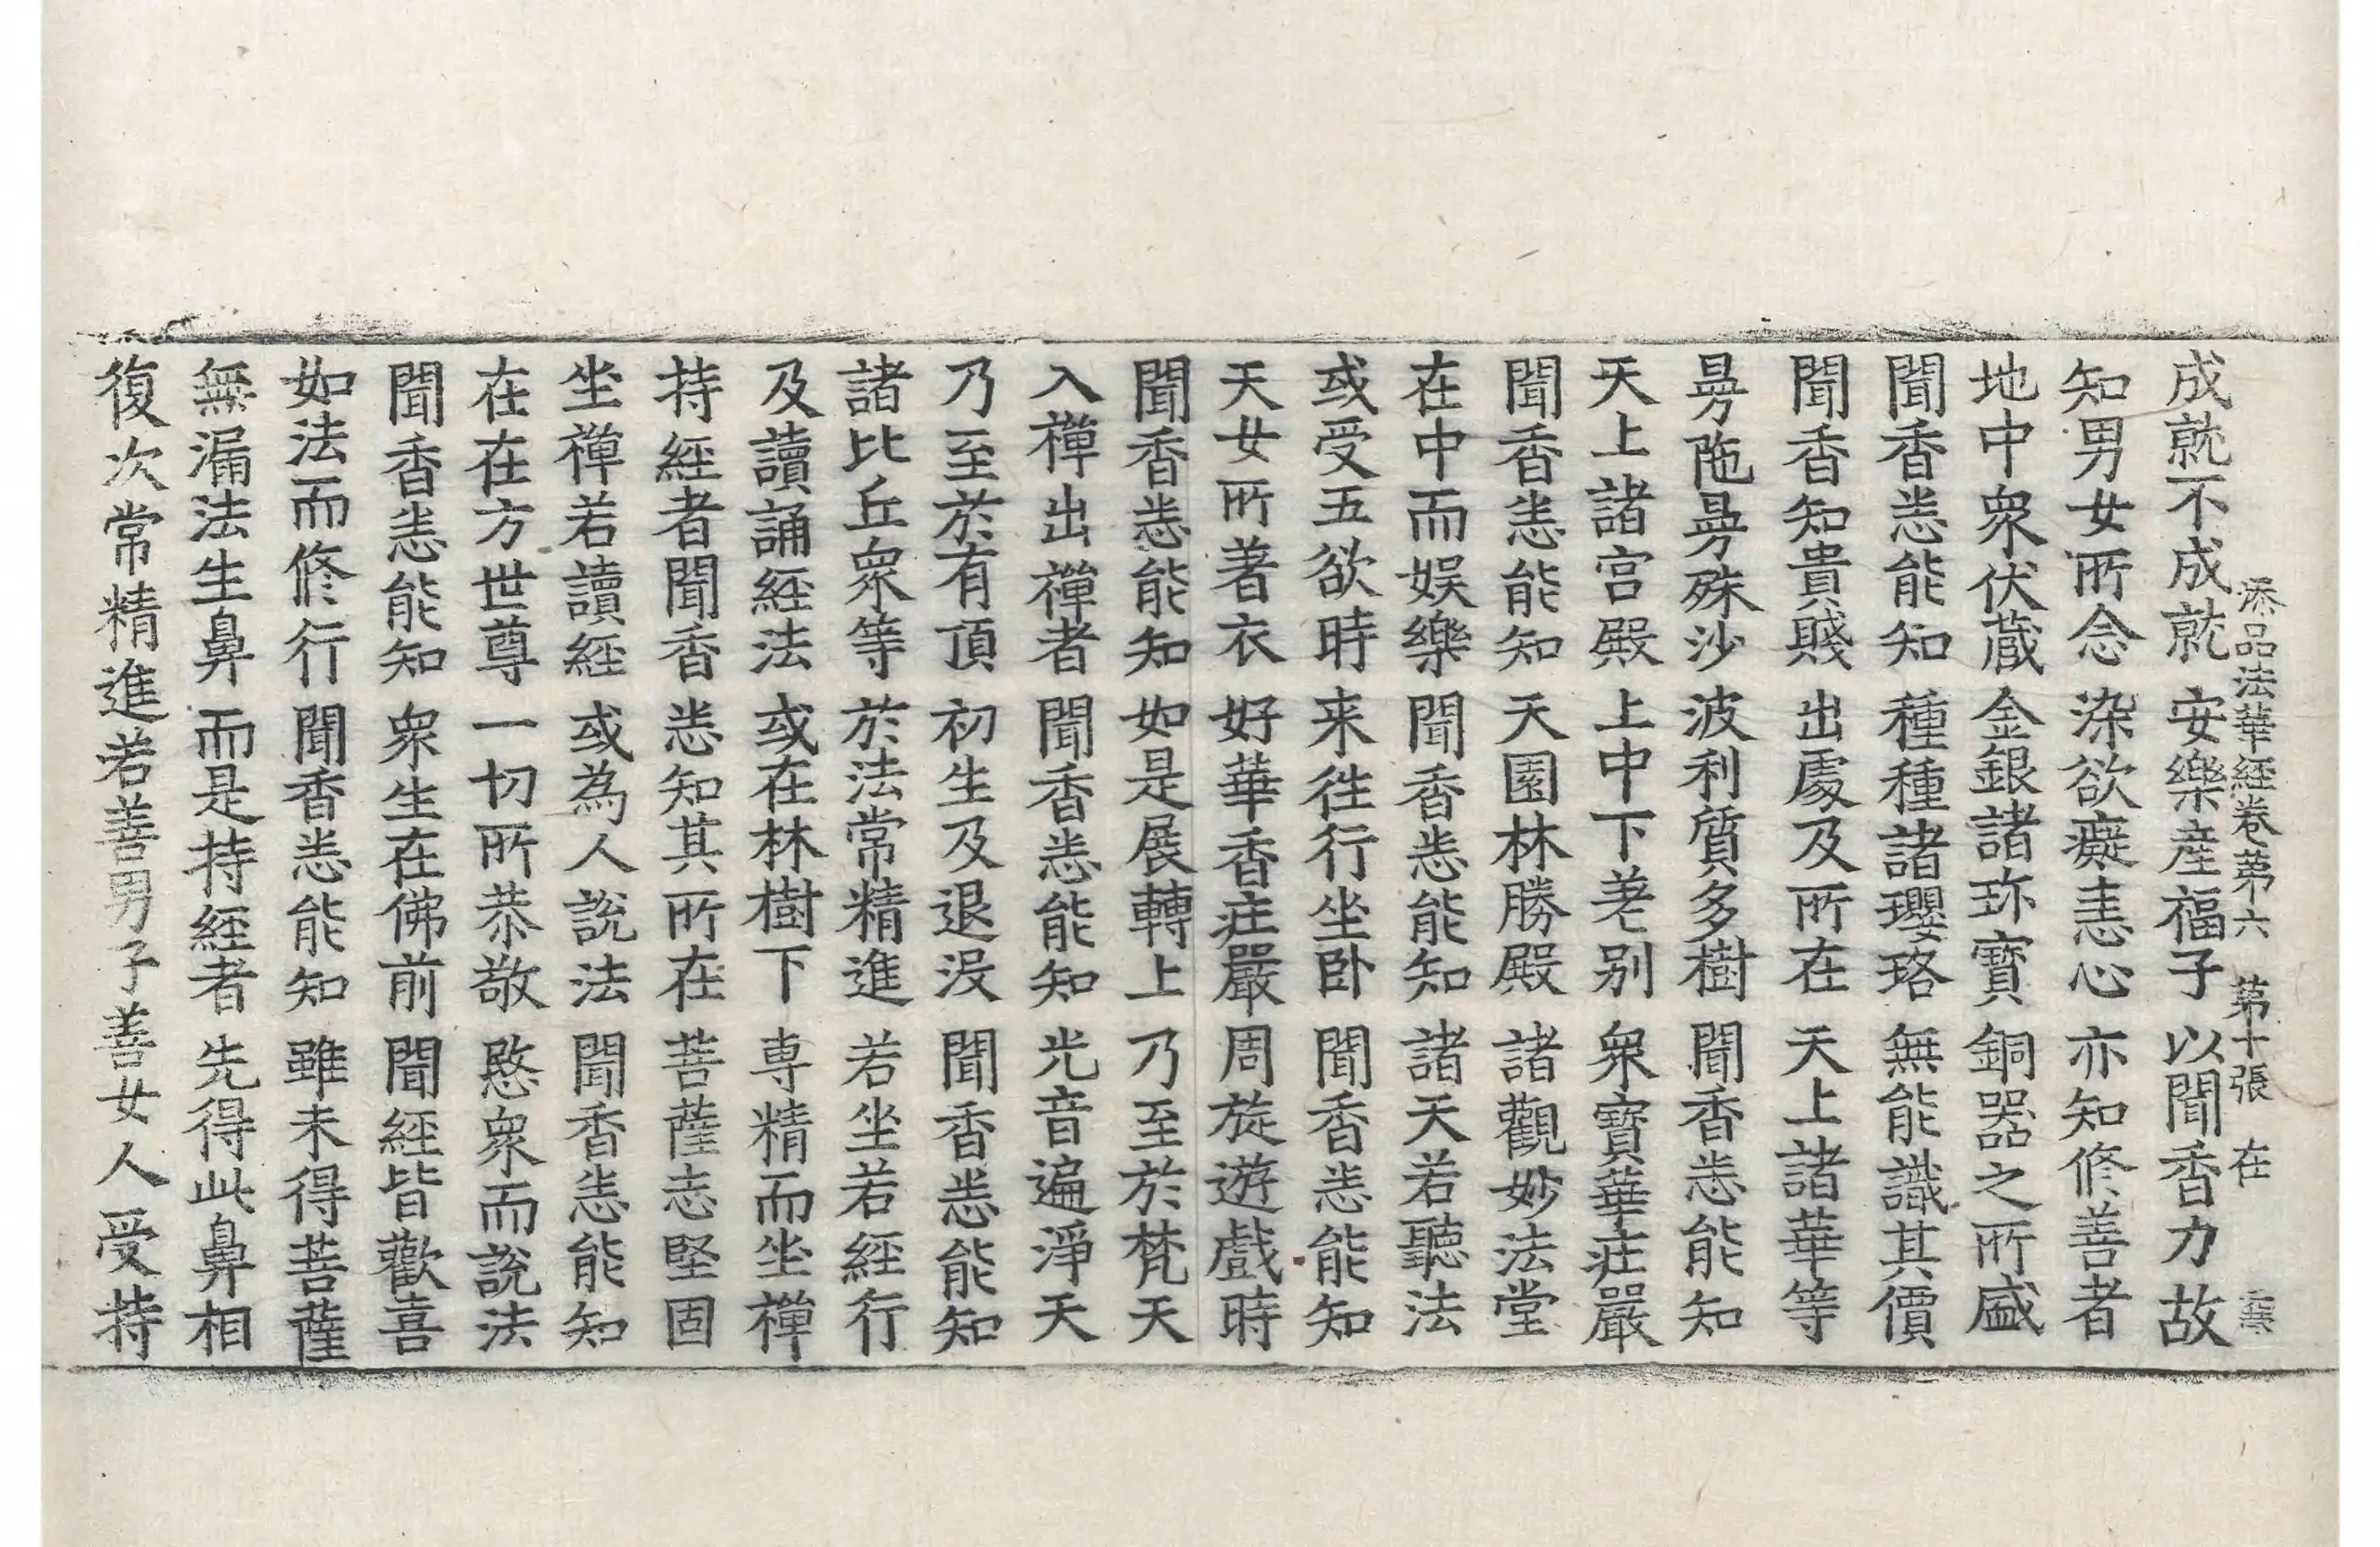 添品法華經卷第六 第十張 在
成就不成就 安樂產福子 以聞香力故
知男女所念 染欲癡恚心 亦知修善者
地中衆伏藏 金銀諸珎寶 銅器之所盛
聞香悉能知 種種諸瓔珞 無能識其價
聞香知貴賤 出處及所在 天上諸華等
曼陁曼殊沙 波利質多樹 聞香悉能知
天上諸宮殿 上中下差別 衆寶華莊嚴
聞香悉能知 天園林勝殿 諸觀妙法堂
在中而娛樂 聞香悉能知 諸天若聽法
或受五欲時 来往行坐卧 聞香悉能知
天女所著衣 好華香莊嚴 周旋遊戲時
聞香悉能知 如是展轉上 乃至於梵天
入禪出禪者 聞香悉能知 光音遍淨天
乃至於有頂 初生及退没 聞香悉能知
諸比丘衆等 於法常精進 若坐若經行
及讀誦經法 或在林樹下 專精而坐禪
持經者聞香 悉知其所在 菩薩志堅固
坐禪若讀經 或為人說法 聞香悉能知
在在方世尊 一切所恭敬 愍衆而說法
聞香悉能知 衆生在佛前 聞經皆歡喜
如法而修行 聞香悉能知 雖未得菩薩
無漏法生鼻 而是持經者 先得此鼻相
復次常精進若善男子善女人受持